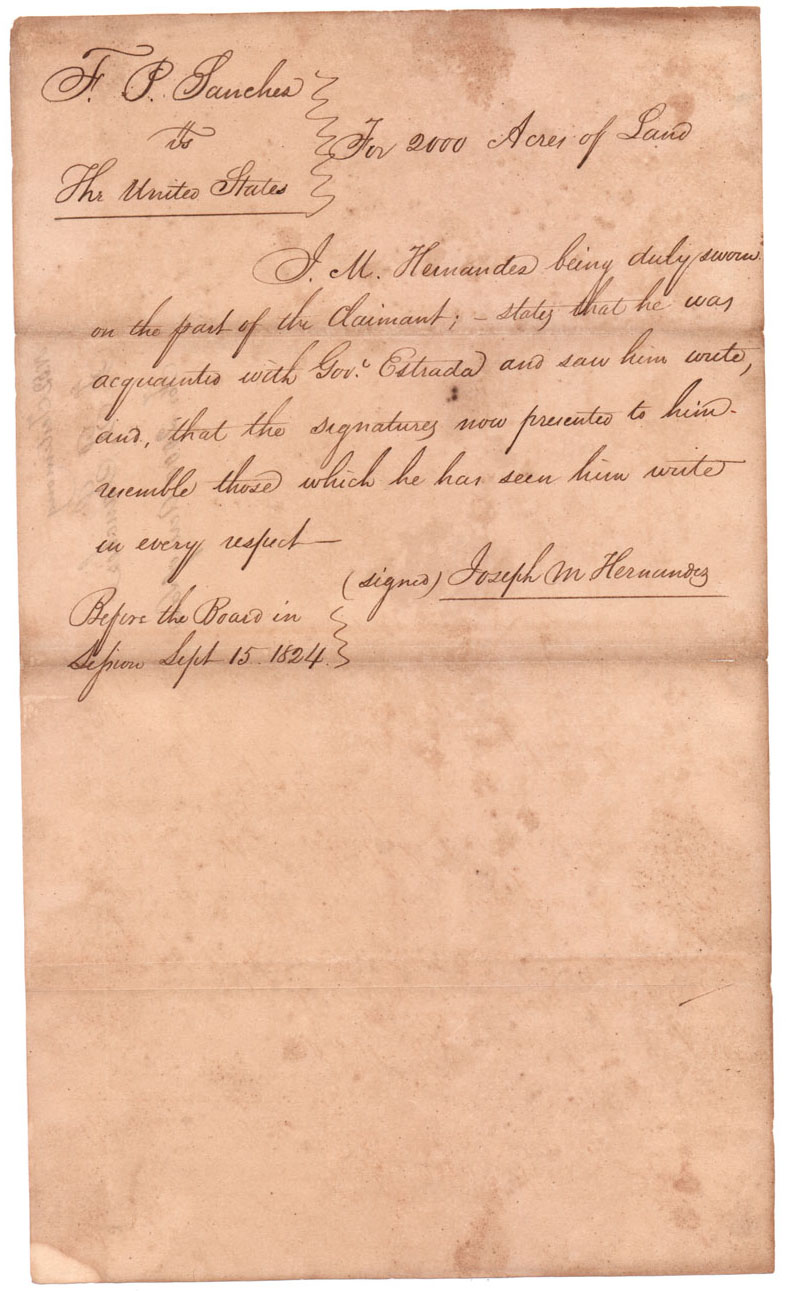 F. P. Sanches
vs
The United States
For 2000 Acres of Land
J. M. Hernandes being duly sworn
on the part of the Claimant; – states that he was
acquainted with Gov.r Estrada and saw him write,
and, that the signatures now presented to him
resemble those which he has seen him write
in every respect —
(signed) Joseph M Hernandez
Before the Board in
Session Sept 15. 1824.